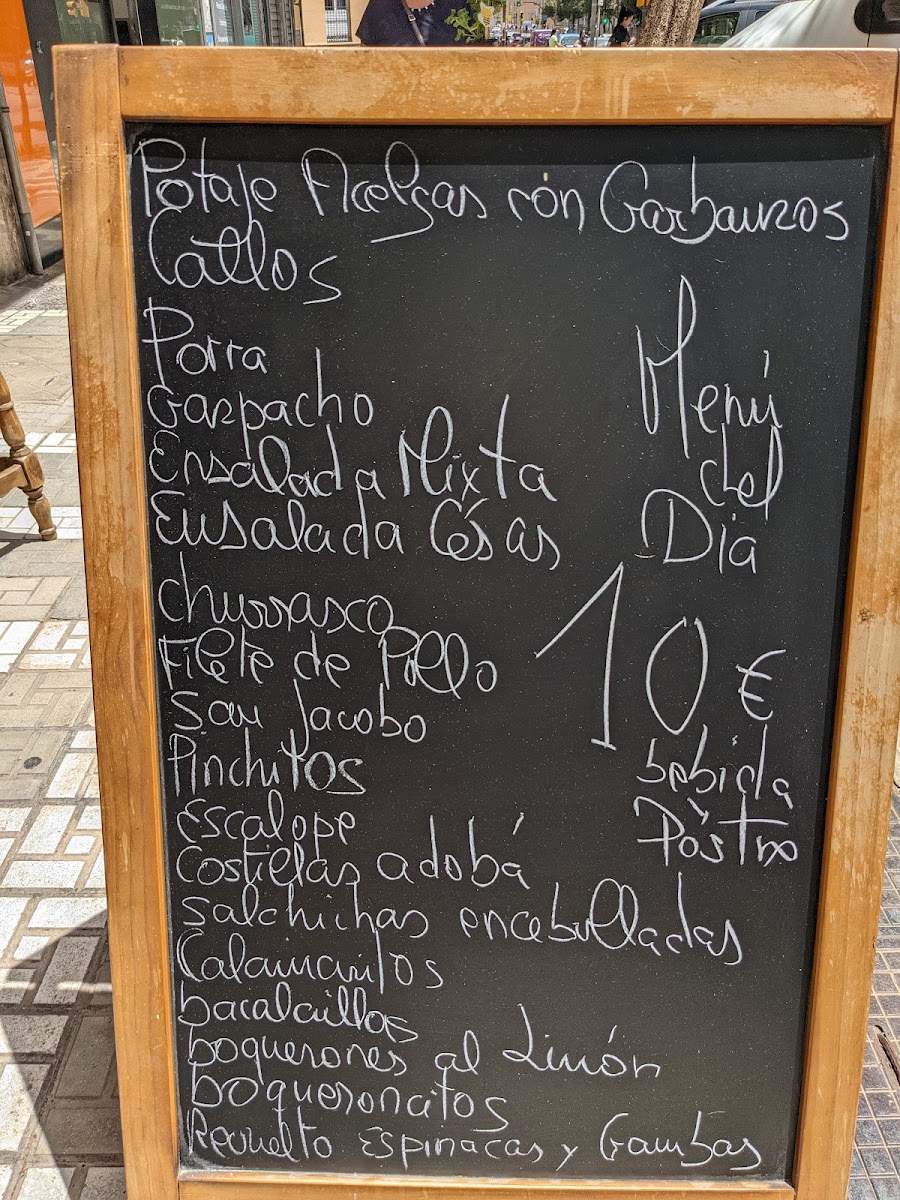 Potaje Acelgas con Garbanzos
Callos
Porra
Gazpacho
Ensalada Mixta
Ensalada César
churrasco
Filete de Pollo
San Jacobo
Pinchitos
escalope
costillas adobá
salchichas encebolladas
Calamaritos
bacalaillas
boquerones al Limón
boqueronatos
Revuelto Espinacas y Gambas
Menú
del
Dia
10 €
bebida
Pòstre